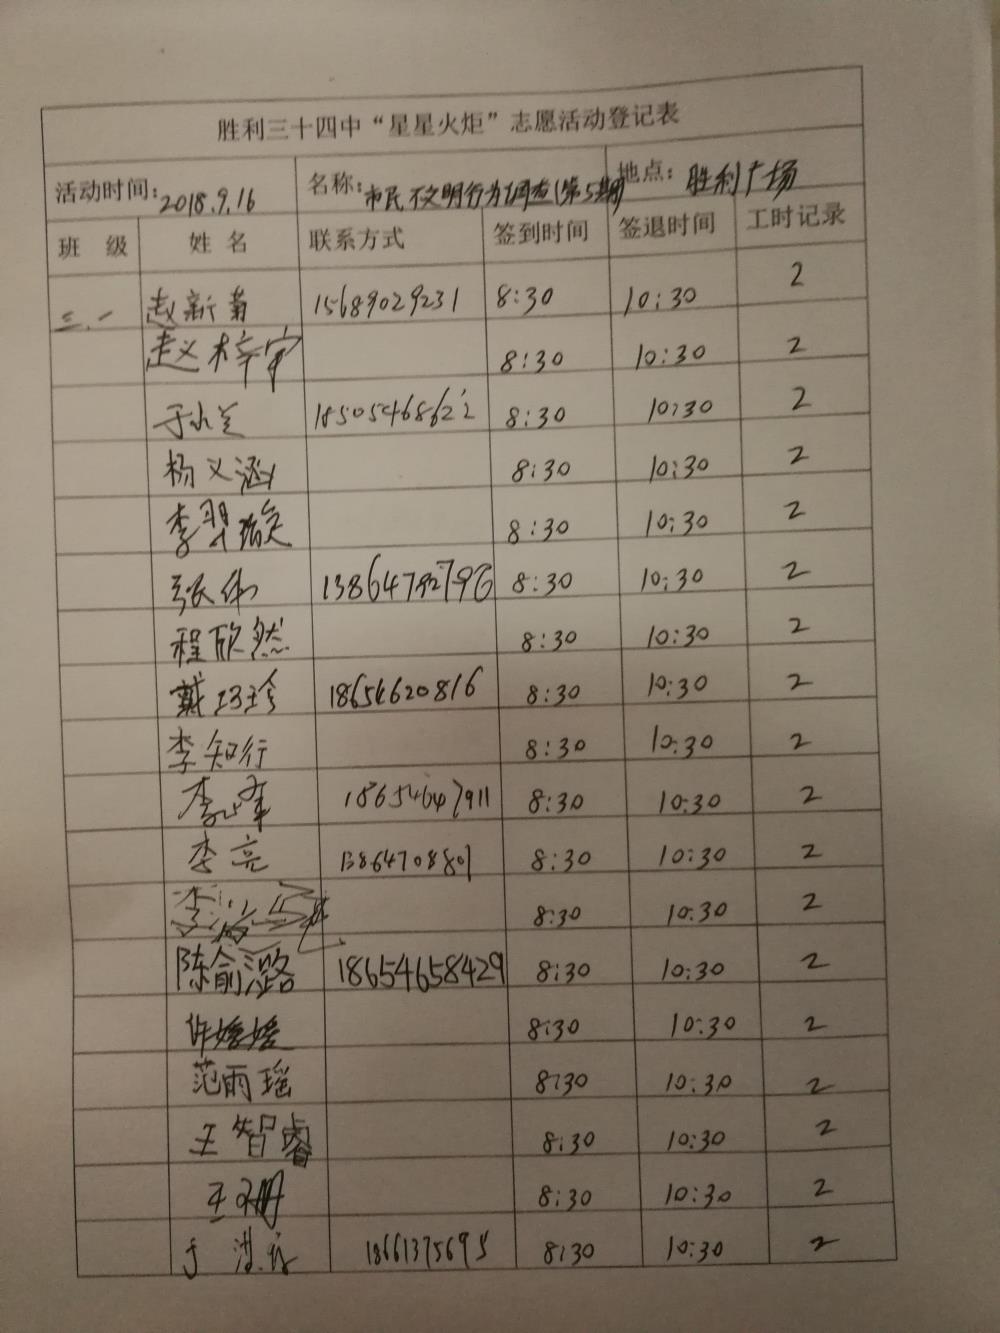 胜利三十四中“星星火炬”志愿活动登记表
活动时间: 2018.9.16 名称: 市民不文明行为调查(第5期) 地点: 胜利广场
班 级 姓 名 联系方式 签到时间 签退时间 工时记录
三.一 赵新菊 15689029231 8:30 10:30 2
赵义梓宁 8:30 10:30 2
于水兰 18505468622 8:30 10:30 2
杨义涵 8:30 10:30 2
李羿璇 8:30 10:30 2
张伟 8:30 10:30 2
程欣然 8:30 10:30 2
戴巧玲 18654620816 8:30 10:30 2
李知行 8:30 10:30 2
李峰 18654647911 8:30 10:30 2
李亮 13864708801 8:30 10:30 2
李 8:30 10:30 2
陈俞潞 18654658429 8:30 10:30 2
许婷婷 8:30 10:30 2
范雨瑶 8:30 10:30 2
王智睿 8:30 10:30 2
王 8:30 10:30 2
于 18661375695 8:30 10:30 2